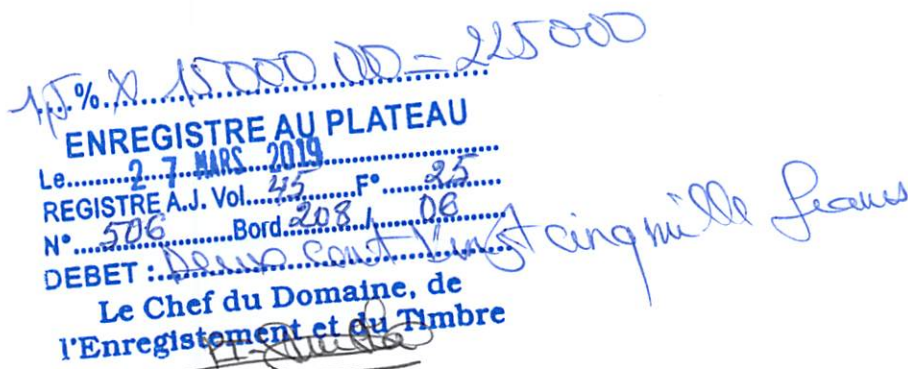 1,5 % X 15000 000 = 225000
ENREGISTRE AU PLATEAU
Le 27 MARS 2019
REGISTRE A.J. Vol. 45 F° 25
N° 506 Bord. 208 / 06
DEBET : Deux cent Vingt cinq mille francs
Le Chef du Domaine, de
l'Enregistement et du Timbre